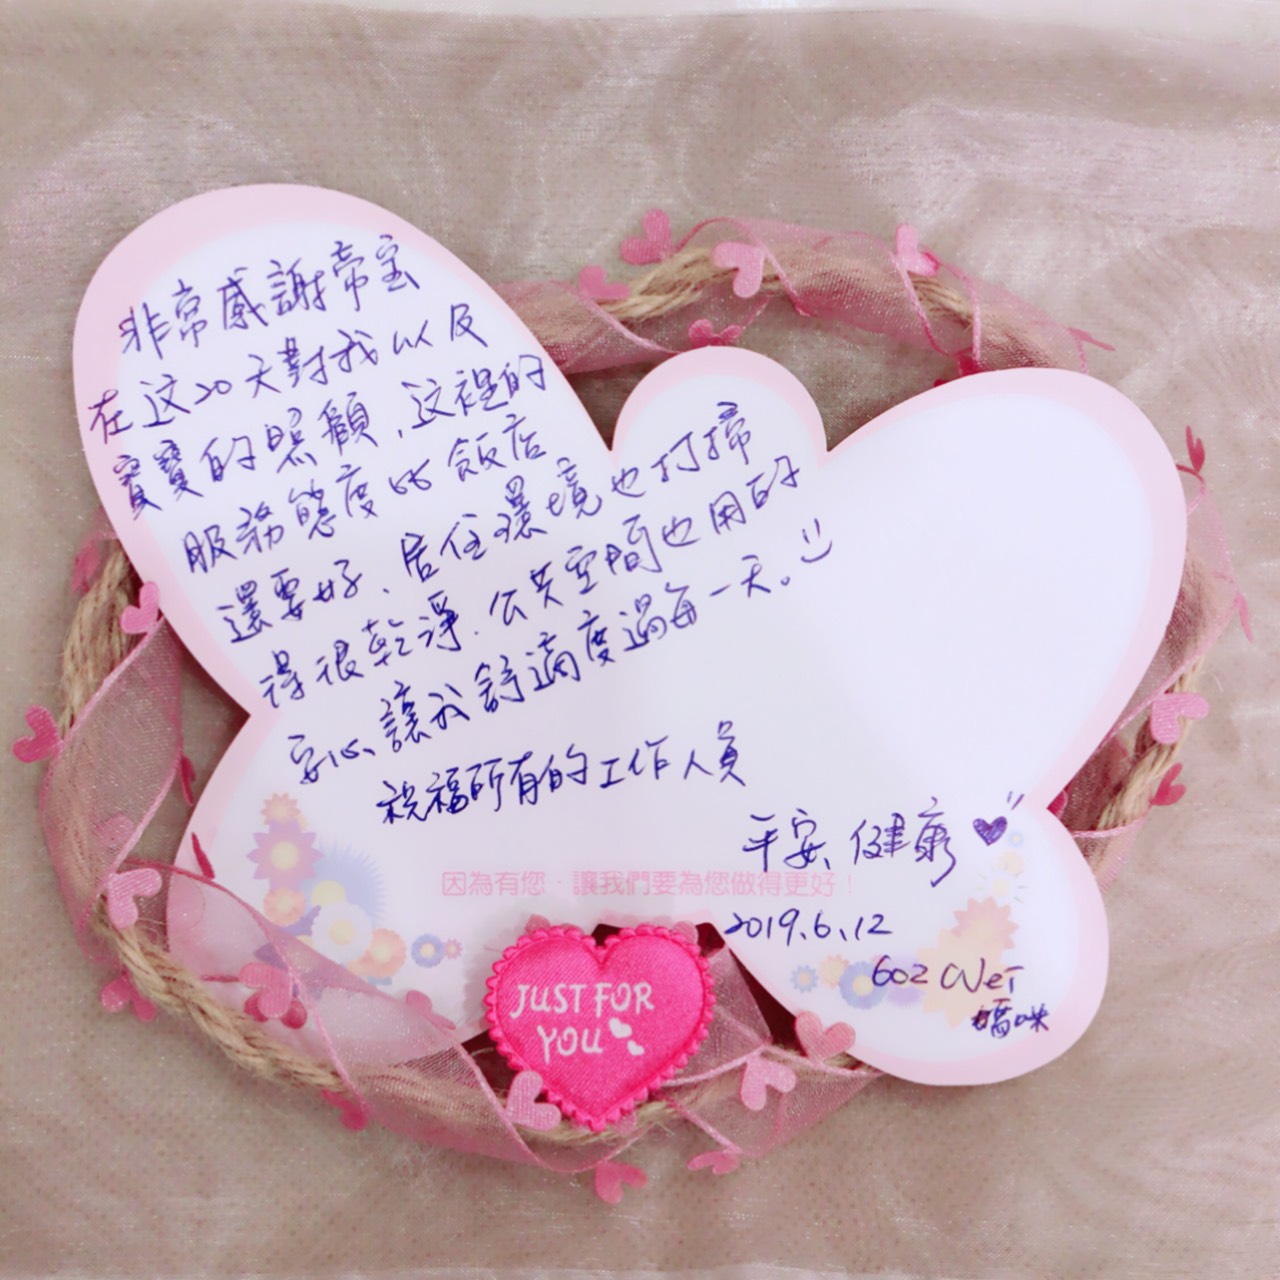 非常感謝帝宝
在这20天對我以及
寶寶的照顧,这裡的
服務態度比飯店
還要好、居住環境也打掃
得很乾淨、公共空間也用的
安心、讓我舒適度過每一天。
祝福所有的工作人員
平安、健康
因為有您‧讓我們要為您做得更好!
2019.6.12
602 Wei
媽咪
JUST FOR
YOU